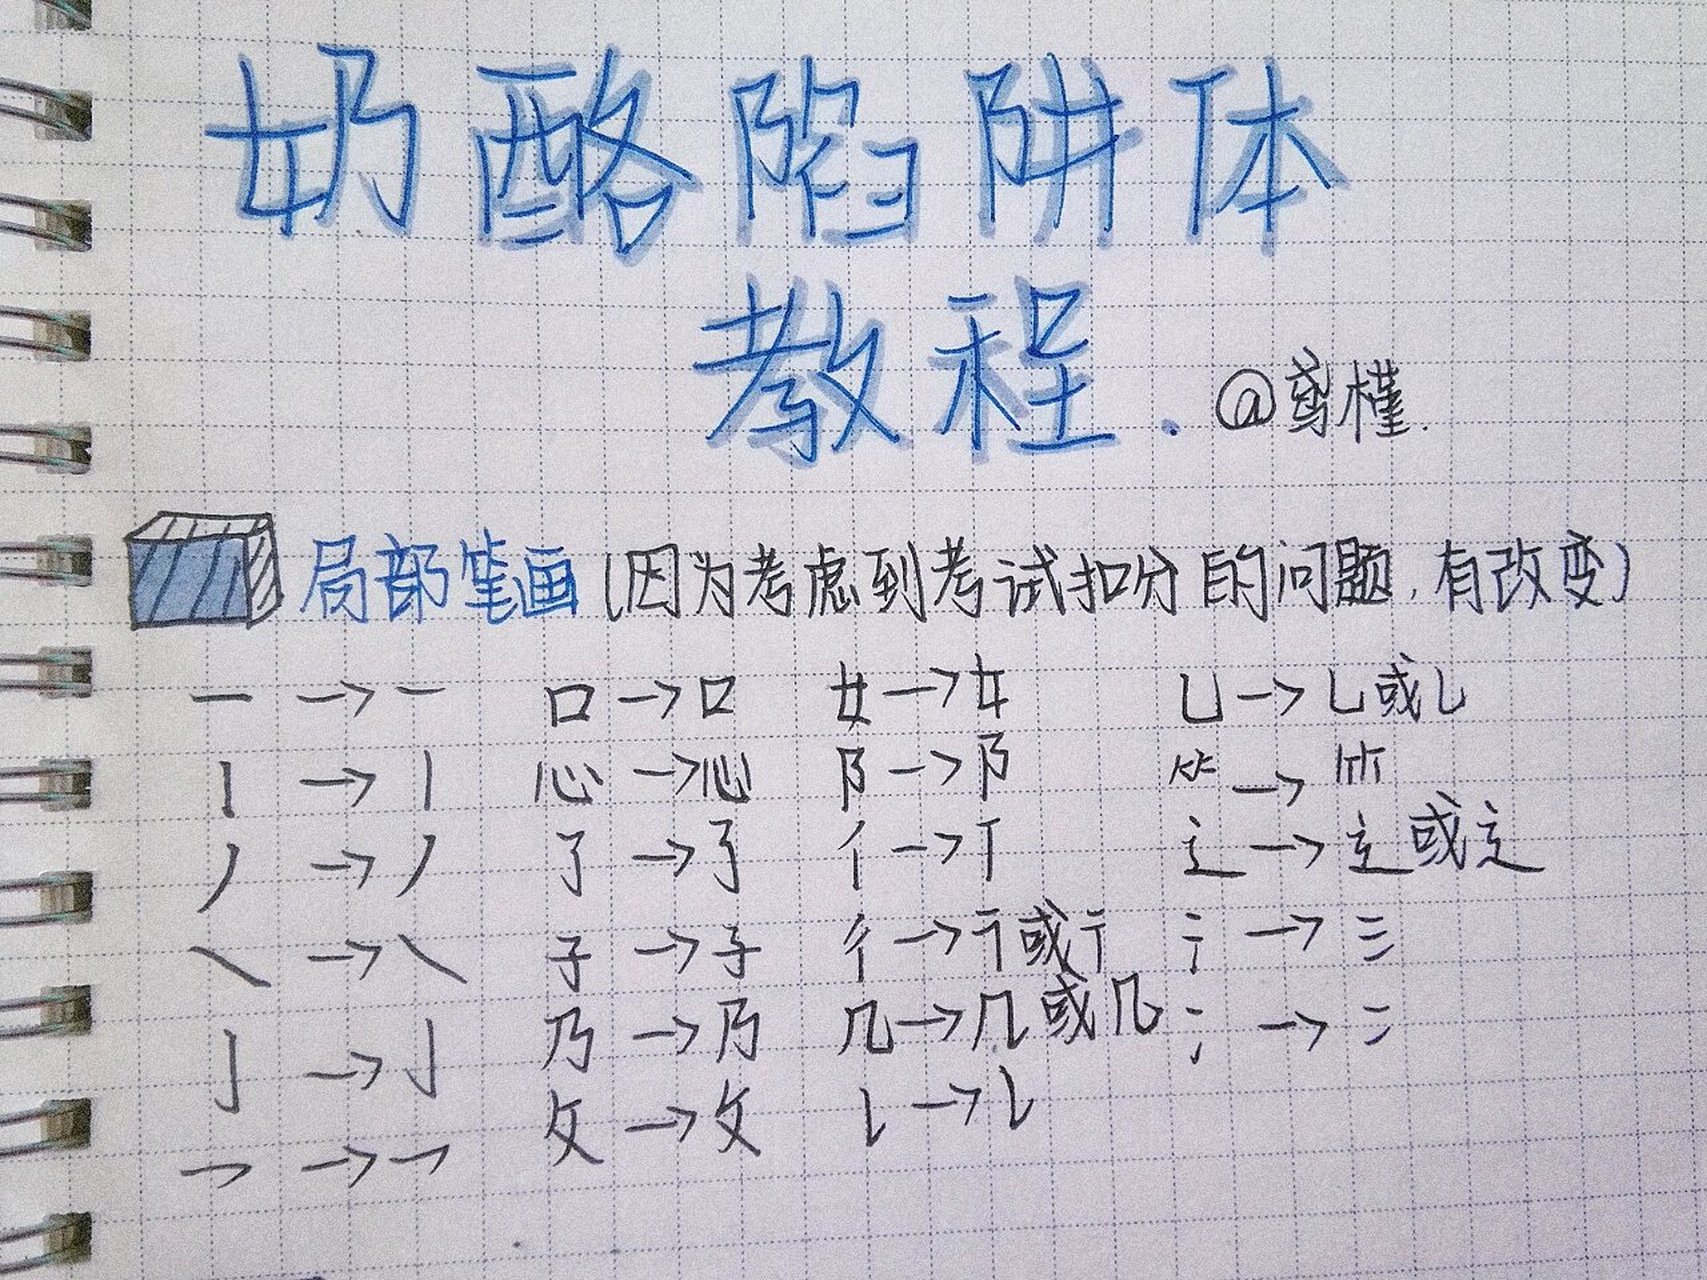 奶酪陷阱体
教程. @鸢槿.
局部笔画(因为考虑到考试扣分的问题,有改变)
一→一 口→口 女→女 乚→乚或乚
丨→丨 心→心 阝→阝 ⺮→⺮
丿→丿 了→了 亻→亻 辶→辶或辶
㇏→㇏ 子→子 彳→彳或彳 氵→氵
亅→亅 乃→乃 几→几或几 冫→冫
乛→乛 攵→攵 ㇙→㇙